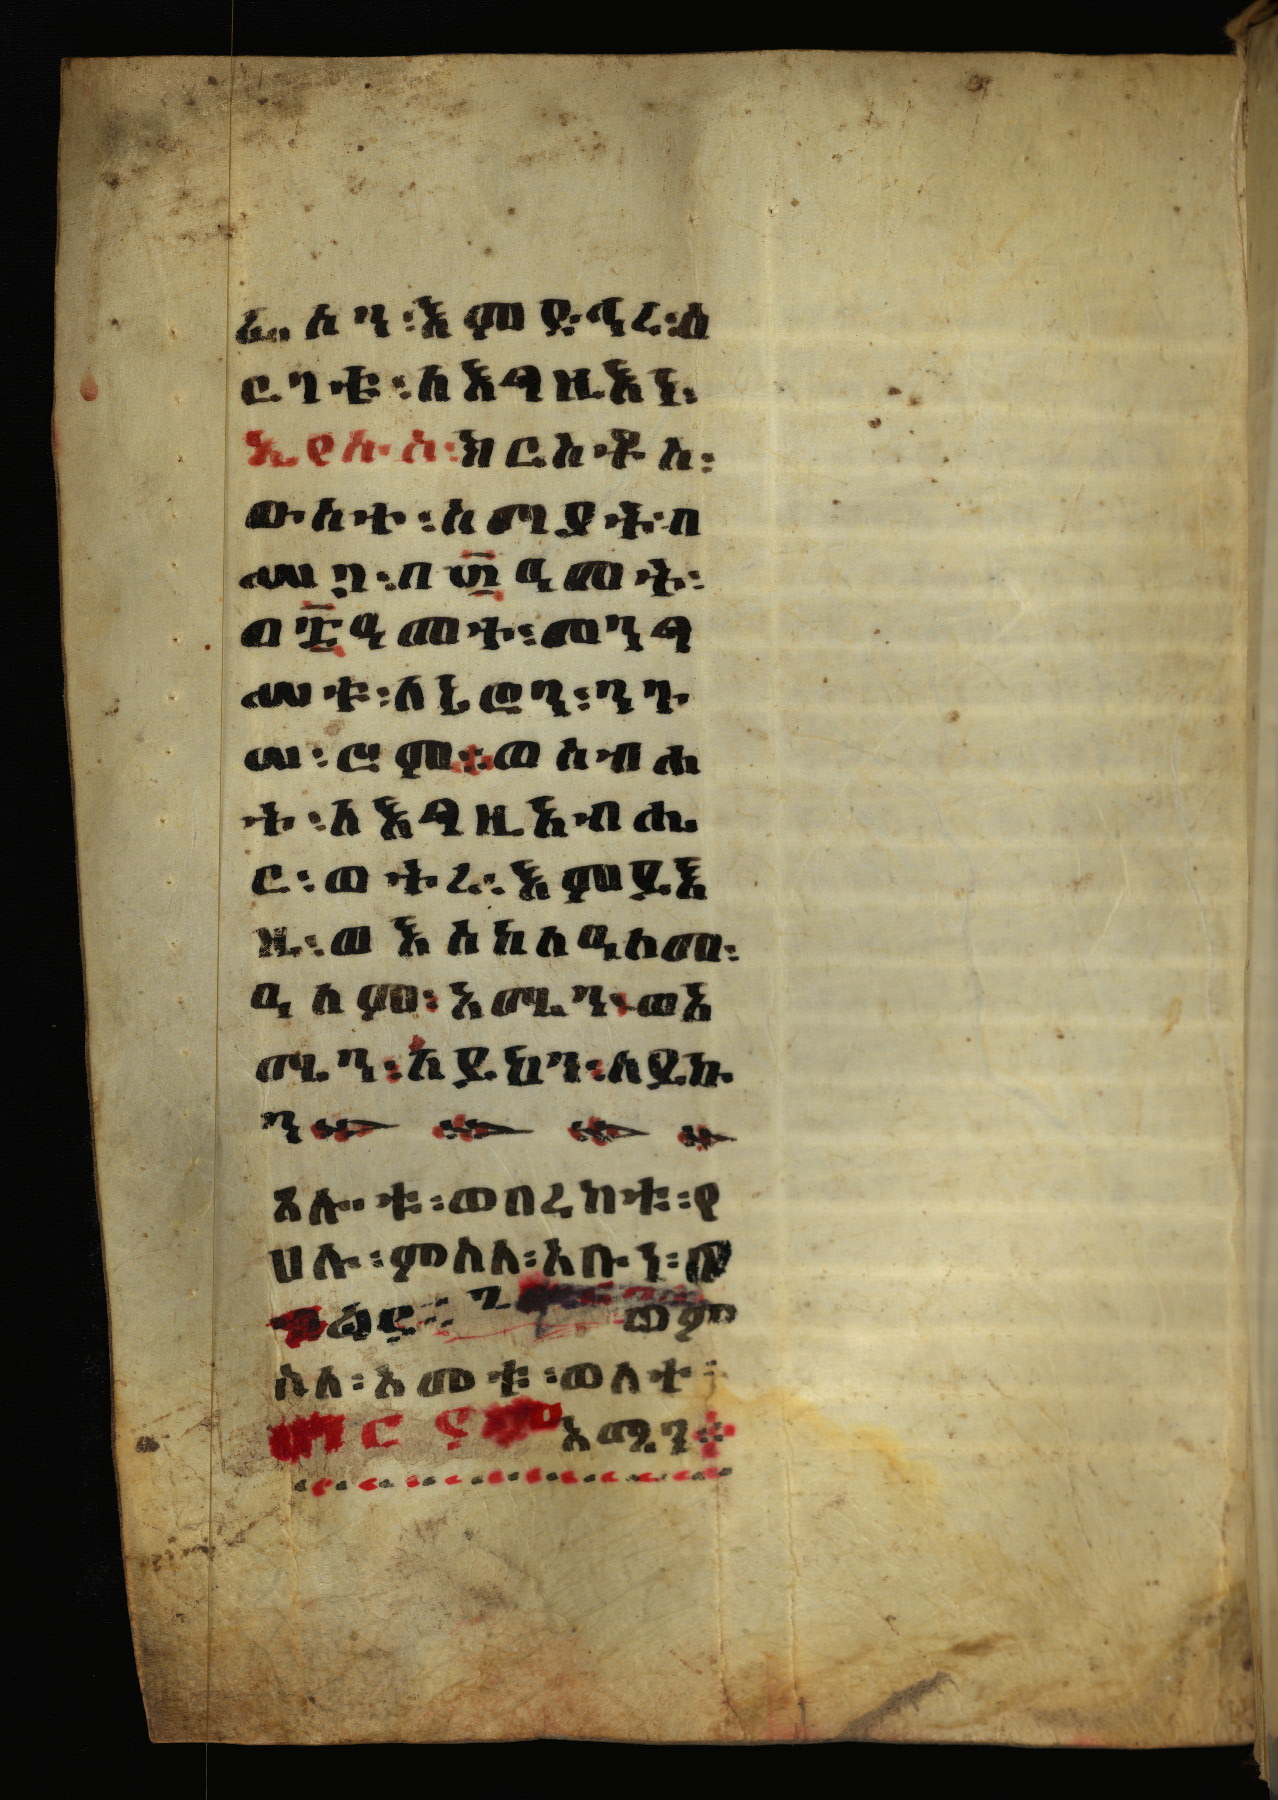 ፌሶን፡እምድኅረ፡ዕ
ርገቱ፡ለእግዚእነ፡
ኢየሱስ፡ክርስቶስ፡
ውስተ፡ሰማያት፡በ
ሥጋ፡በ፴ዓመት፡
በ፰ዓመተ፡መንግ
ሥቱ፡ለኔሮን፡ንጉ
ሠ፡ሮም፡ወስብሐ
ት፡ለእግዚአብሔ
ር፡ወትረ፡እምይእ
ዜ፡ወእስከ፡ለዓለመ፡
ዓለም፡አሜን፡ወአ
ሜን፡ለይኩን፡ለይኩ
ን
ጸሎቱ፡ወበረከቱ፡የ
ሀሉ፡ምስለ፡አቡነ፡
ወም
ስለ፡እመቱ፡ወለተ፡
ማርያም አሜን።